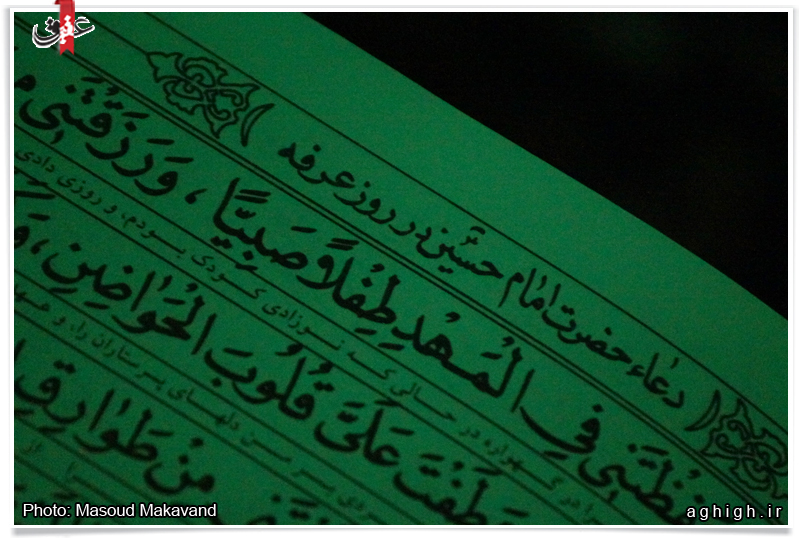 عقیق
دعاء حضرت امام حسین در روز عرفه
فِي الْمَهْدِ طِفْلاً صَبِيًّا ، وَرَزَقْتَنِي
در گهواره در حالی که نوزادی کودی بودم، و روزی دادی
عَلَيَّ قُلُوبَ الْحَوَاضِنِ ،
بر من دلهای پرستاران را، و
مِنْ طَوَارِقِ
Photo: Masoud Makavand
aghigh.ir